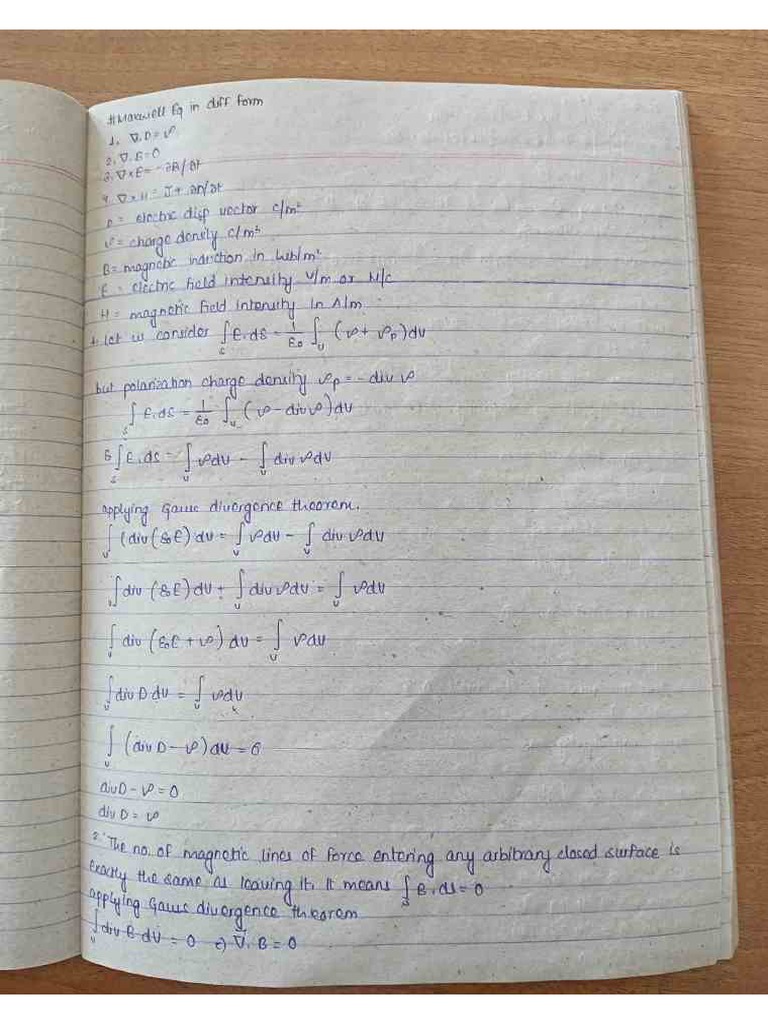 # Maxwell Eq in diff form
1. ∇.D = ρ
2. ∇.B = 0
3. ∇×E = -∂B/∂t
4. ∇×H = J + ∂D/∂t
D = electric disp vector C/m²
ρ = charge density C/m³
B = magnetic induction in Wb/m²
E = electric field intensity V/m or N/C
H = magnetic field intensity in A/m
1. Let us consider ∫_S E.dS = 1/ε0 ∫_V (ρ + ρp) dV
but polarization charge density ρp = - div ρ
∫_S E.dS = 1/ε0 ∫_V (ρ - div ρ) dV
ε ∫_S E.dS = ∫_V ρ dV - ∫_V div ρ dV
applying Gauss divergence theorem.
∫_V (div (ε0E) dV = ∫_V ρ dV - ∫_V div ρ dV
∫_V div (ε0E) dV + ∫_V div ρ dV = ∫_V ρ dV
∫_V div (ε0E + ρ) dV = ∫_V ρ dV
∫_V div D dV = ∫_V ρ dV
∫_V (div D - ρ) dV = 0
div D - ρ = 0
div D = ρ
2. The no. of magnetic lines of force entering any arbitrary closed surface is
exactly the same as leaving it. It means ∫_S B.dS = 0
applying Gauss divergence theorem
∫_V div B dV = 0 ⇒ ∇.B = 0